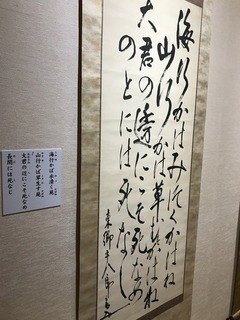 海行かはみつくかはね
山行かは草むすかはね
大君の邊にこそ死なめ
のとには死なし
東郷平八郎書
海行かば水漬く屍
山行かば草生す屍
大君の辺にこそ死なめ
長閑には死なじ